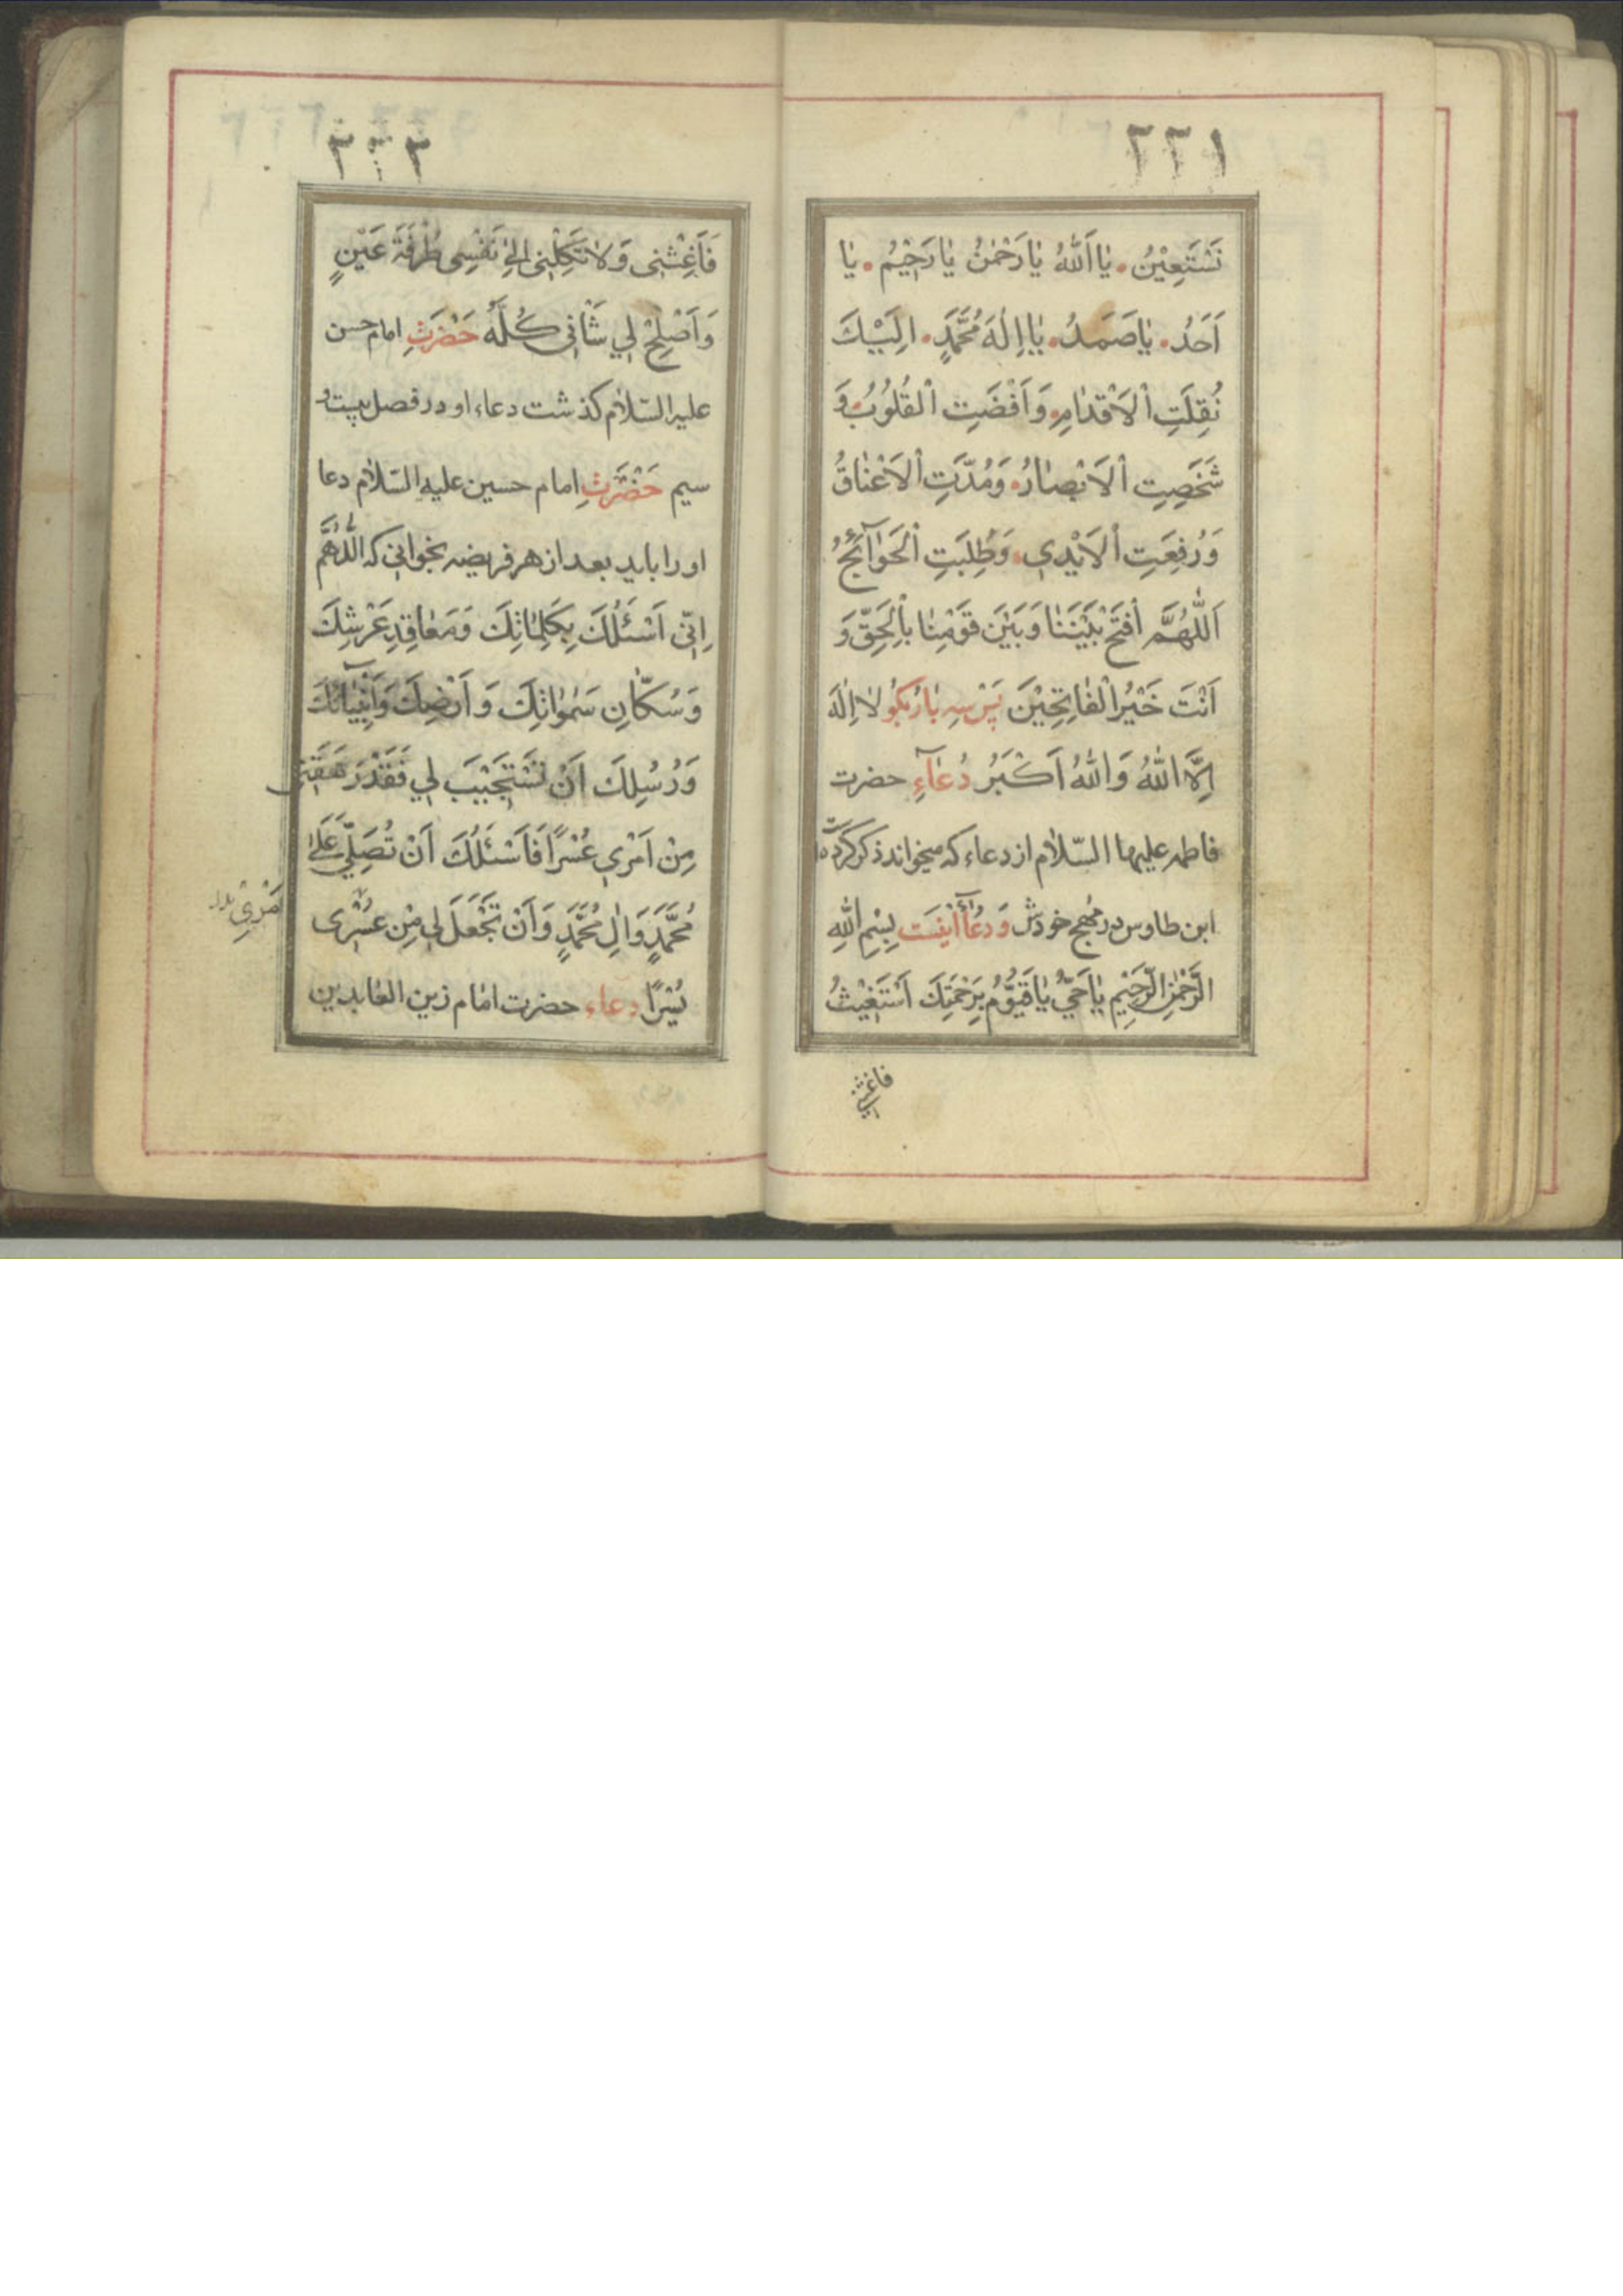 ٢٢١
نَسْتَعِيْنُ. يٰا اَللّٰهُ يٰا رَحْمٰنُ يٰا رَحِيْمُ. يٰا
اَحَدُ. يٰا صَمَدُ. يٰا اِلٰهَ مُحَمَّدٍ. اِلَيْكَ
نُقِلَتِ اْلاَقْدٰامِ. وَ اَفْضَتِ اْلقُلُوُبُ. وَ
شَخَصِتِ اْلاَبْصٰارُ. وَ مُدَّتِ اْلاَعْنٰاقُ
وَ رُفِعَتِ اْلاَيْدِي. وَ طُلِبَتِ اْلحَوٰآئِجُ
اَللّٰهُمَّ اْفتَحْ بَيْنَنٰا وَ بَيْنَ قَوْمِنٰا بِاْلحَقِّ وَ
اَنْتَ خَيْرُ الْفٰاتِحِيْنَ پَسْ سِه بٰارْ بِكُو لٰا اِلٰهَ
اِلَّا اللّٰهُ وَ اللّٰهُ اَكْبَرُ دُعٰآءِ حضرت
فاطمه عليها السّلام از دعاء كه ميخواند ذكر كرده
ابن طاوس در مهج خودش وَ دعآ اينست بِسْمِ اللّٰهِ
الرَّحْمٰنِ الرَّحِيْمِ يٰا حَيُّ يٰا قَيُّوُمُ بِرَحْمَتِكَ اَسْتَغِيْثُ
فاغثني
٢٢٢
فَاَغِثْنِى وَ لاٰ تَكِلْنِى اِلىٰ نَفْسِى طُرْفَةَ عَيْنٍ
وَ اَصْلِحْ لِي شَأْنِى كُلَّهُ حَضْرَتِ امام حسن
عليه السّلام كذشت دعاء او در فصل بيست و
سيم حَضْرَتِ امام حسين عليه السّلام دعا
او را بايد بعد از هر فريضه بخوانى كه اَللّٰهُمَّ
اِنّى اَسْئَلُكَ بِكَلِمٰاتِكَ وَ مَعٰاقِدِ عَرْشِكَ
وَ سُكّٰانِ سَمٰوٰاتِكَ وَ اَرْضِكَ وَ اَنْبِيٰآئِكَ
وَ رُسُلِكَ اَنْ تَسْتَجِيْبَ لِي فَقَدْ رَهَقَنِى
مِنْ اَمْرِي عُسْرًا فَاَسْئَلُكَ اَنْ تُصَلِّيَ عَلىٰ
مُحَمَّدٍ وَ اٰلِ مُحَمَّدٍ وَ اَنْ تَجْعَلَ لِي مِنْ عُسْرِى
يُسْرًا دعاء حضرت امام زين العابدين
اَمْرِي